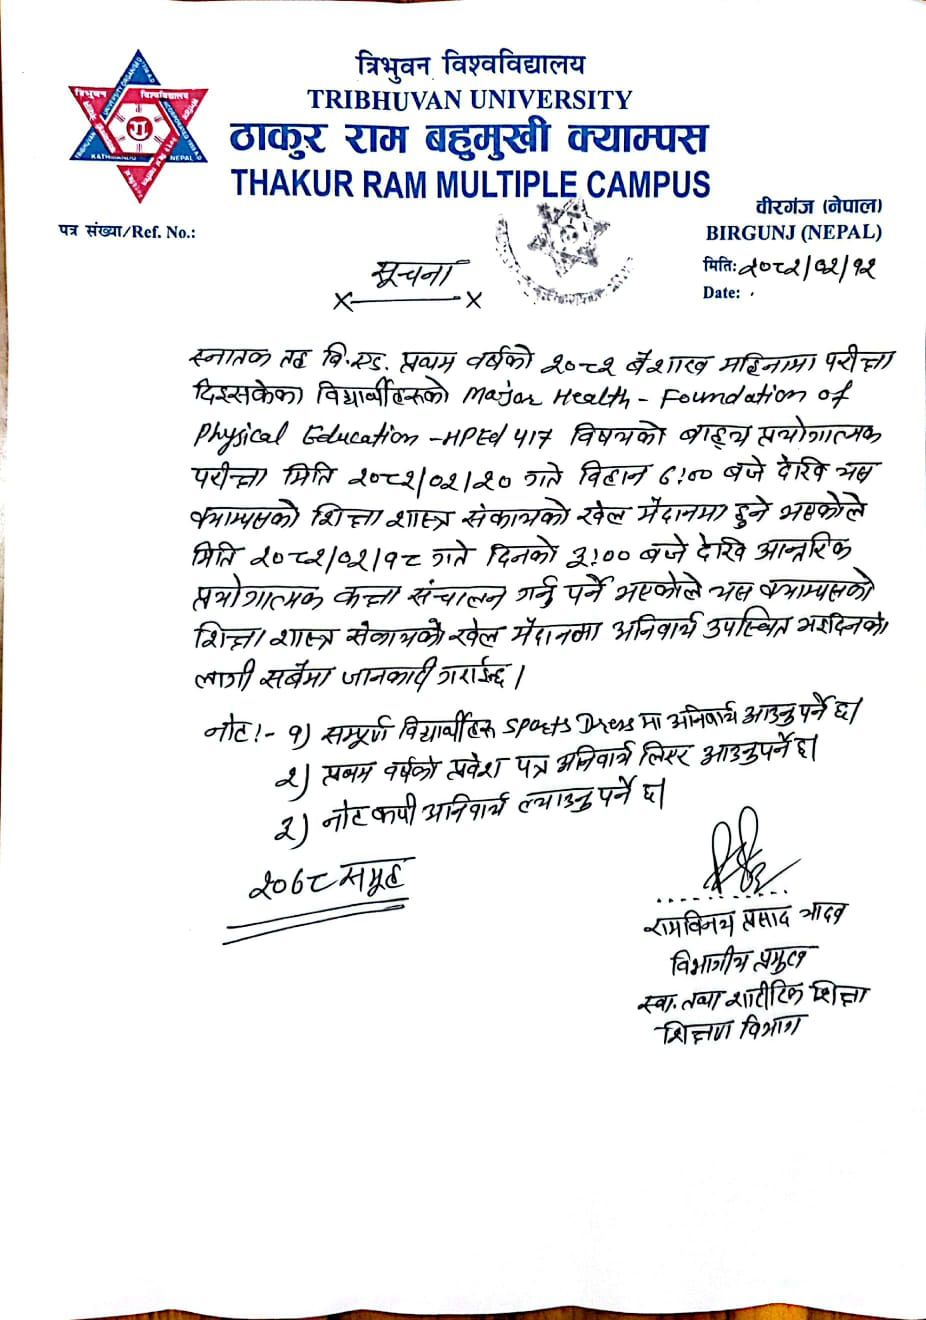 त्रिभुवन विश्वविद्यालय
TRIBHUVAN UNIVERSITY
ठाकुर राम बहुमुखी क्याम्पस
THAKUR RAM MULTIPLE CAMPUS
वीरगंज (नेपाल)
पत्र संख्या/Ref. No.:
BIRGUNJ (NEPAL)
मिति: २०८२/०२/१२
Date:
सूचना
स्नातक तह बि.एड. प्रथम वर्षको २०८२ बैशाख महिनामा परीक्षा
दिइसकेका विद्यार्थीहरुको Major Health - Foundation of
Physical Education - HPEd 417 विषयको बाह्य प्रयोगात्मक
परीक्षा मिति २०८२/०२/२० गते विहान ६:०० बजे देखि यस
क्याम्पसको शिक्षा शास्त्र संकायको खेल मैदानमा हुने भएकोले
मिति २०८२/०२/१८ गते दिनको ३:०० बजे देखि आन्तरिक
प्रयोगात्मक कक्षा संचालन गर्नु पर्ने भएकोले यस क्याम्पसको
शिक्षा शास्त्र संकायको खेल मैदानमा अनिवार्य उपस्थित भइदिनको
लागी सबैमा जानकारी गराईन्छ।
नोट:- १) सम्पूर्ण विद्यार्थीहरु Sports Dress मा अनिवार्य आउनु पर्ने छ।
२) प्रथम वर्षको प्रवेश पत्र अनिवार्य लिएर आउनुपर्ने छ।
३) नोट कपी अनिवार्य ल्याउनु पर्ने छ।
२०७८ समूह
रामविनय प्रसाद यादव
विभागीय प्रमुख
स्वा. तथा शारीरिक शिक्षा
शिक्षण विभाग